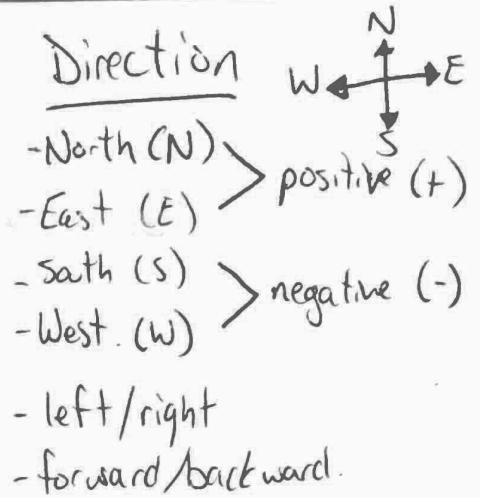 Direction
N
W E
S
- North (N)
- East (E)
positive (+)
- South (S)
- West. (W)
negative (-)
- left/right
- forward/backward.